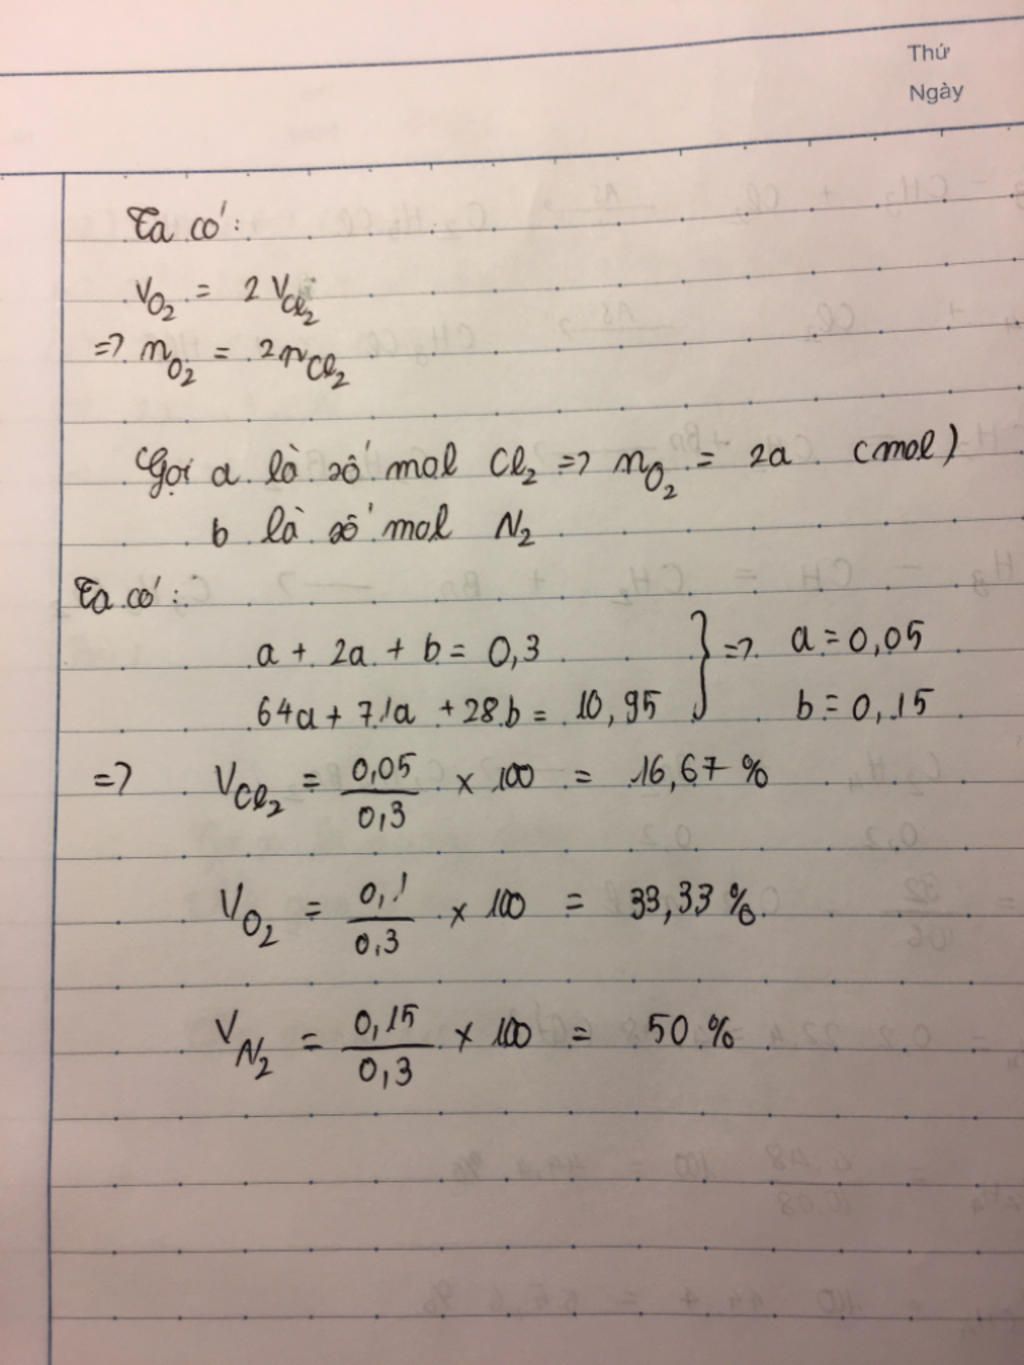 Thứ
Ngày
Ta có:
V_O₂ = 2 V_Cl₂
=> n_O₂ = 2n_Cl₂
Gọi a là số mol Cl₂ => n_O₂ = 2a (mol)
b là số mol N₂
Ta có:
a + 2a + b = 0,3 } => a = 0,05
64a + 71a + 28b = 10,95 b = 0,15
=> V_Cl₂ = 0,05/0,3 × 100 = 16,67 %
V_O₂ = 0,1/0,3 × 100 = 33,33 %
V_N₂ = 0,15/0,3 × 100 = 50 %